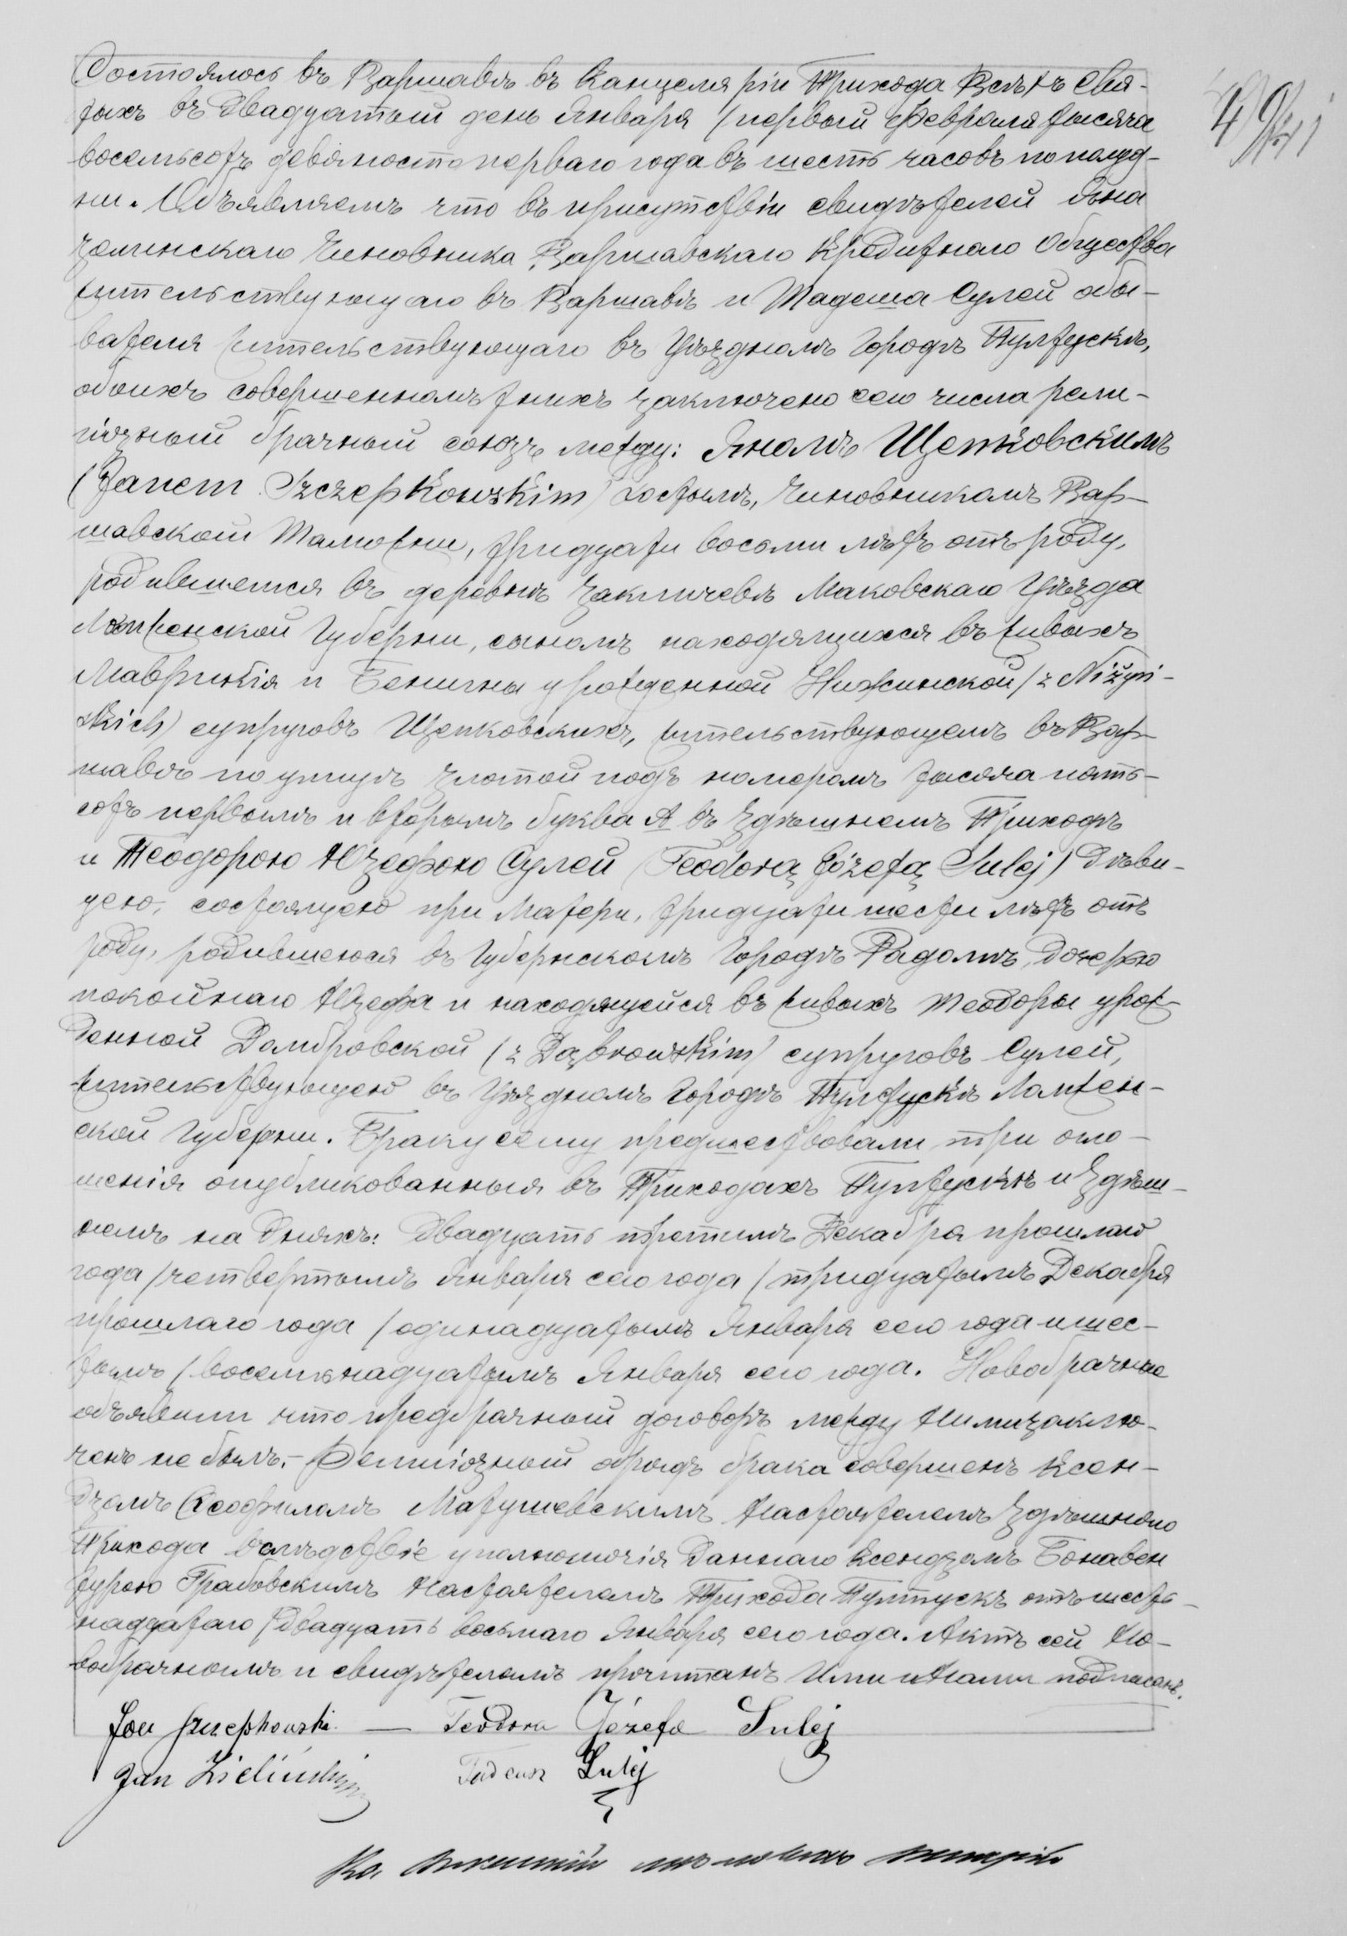 Состоялось въ Варшавѣ въ Канцеляріи Прихода Всѣхъ Свя-
тыхъ въ Двадцатый день Января /первый Февраля тысяча
восемьсотъ девяносто перваго года въ шесть часовъ пополуд-
ни. Объявляемъ что въ присутствіи свидѣтелей Яна
Зелинскаго Чиновника Варшавскаго Кредитнаго Общества
жительствующаго въ Варшавѣ и Тадеша Сулей обы-
вателя жительствующаго въ Уѣздномъ Городѣ Пултускѣ,
обоихъ совершеннолѣтнихъ заключено сего числа рели-
гіозный брачный союзъ между: Яномъ Щепковскимъ
(Janem Szczepkowskim) холостымъ, Чиновникомъ Вар-
шавской Таможни, тридцати восьми лѣтъ отъ роду,
родившемся въ деревнѣ Закличевѣ Маковскаго Уѣзда
Ломженской Губерніи, сыномъ находящихся въ живыхъ
Маврикія и Бенигны урожденной Нижинской (z Niżyń-
skich) супруговъ Щепковскихъ, жительствующемъ въ Вар-
шавѣ по улицѣ Злотой подъ номеромъ тысяча пять-
сотъ первымъ и вторымъ буква А въ здѣшнемъ Приходѣ
и Теодорою Юзефою Сулей (Teodorą Józefą Sulej) Дѣви-
цею, состоящею при Матери, тридцати шести лѣтъ отъ
роду, родившеюся въ Губернскомъ Городѣ Радомѣ, дочерью
покойнаго Юзефа и находящейся въ живыхъ Теодоры урож-
денной Домбровской (z Dąbrowskim) супруговъ Сулей,
жительствующею въ Уѣздномъ Городѣ Пултускѣ Ломжен-
ской Губерніи. Браку сему предшествовали три огло-
шенія опубликованныя въ Приходахъ Пултускѣ и Здѣш-
немъ на Дняхъ: Двадцать третьимъ Декабря прошлаго
года /четвертымъ Января сего года /тридцатымъ Декабря
прошлаго года /одинадцатымъ Января сего года и шес-
тымъ /восемьнадцатымъ Января сего года. Новобрачные
объявили что предбрачный договоръ между Ними заклю-
ченъ не былъ.- Религіозный обрядъ брака совершенъ Ксен-
дзомъ Ѳеофиломъ Матушевскимъ Настоятелемъ Здѣшняго
Прихода вслѣдствіе уполномочія даннаго Ксендзомъ Бонавен
турою Грабовскимъ Настоятелемъ Прихода Пултускъ отъ шест-
надцатаго /двадцать восьмаго Января сего года. Актъ сей Но-
вобрачнымъ и свидѣтелямъ прочитанъ Ими и Нами подписанъ.
Jan Szczepkowski — Teodora Józefa Sulej
Jan Zieliński Tadeusz Sulej
Кс.